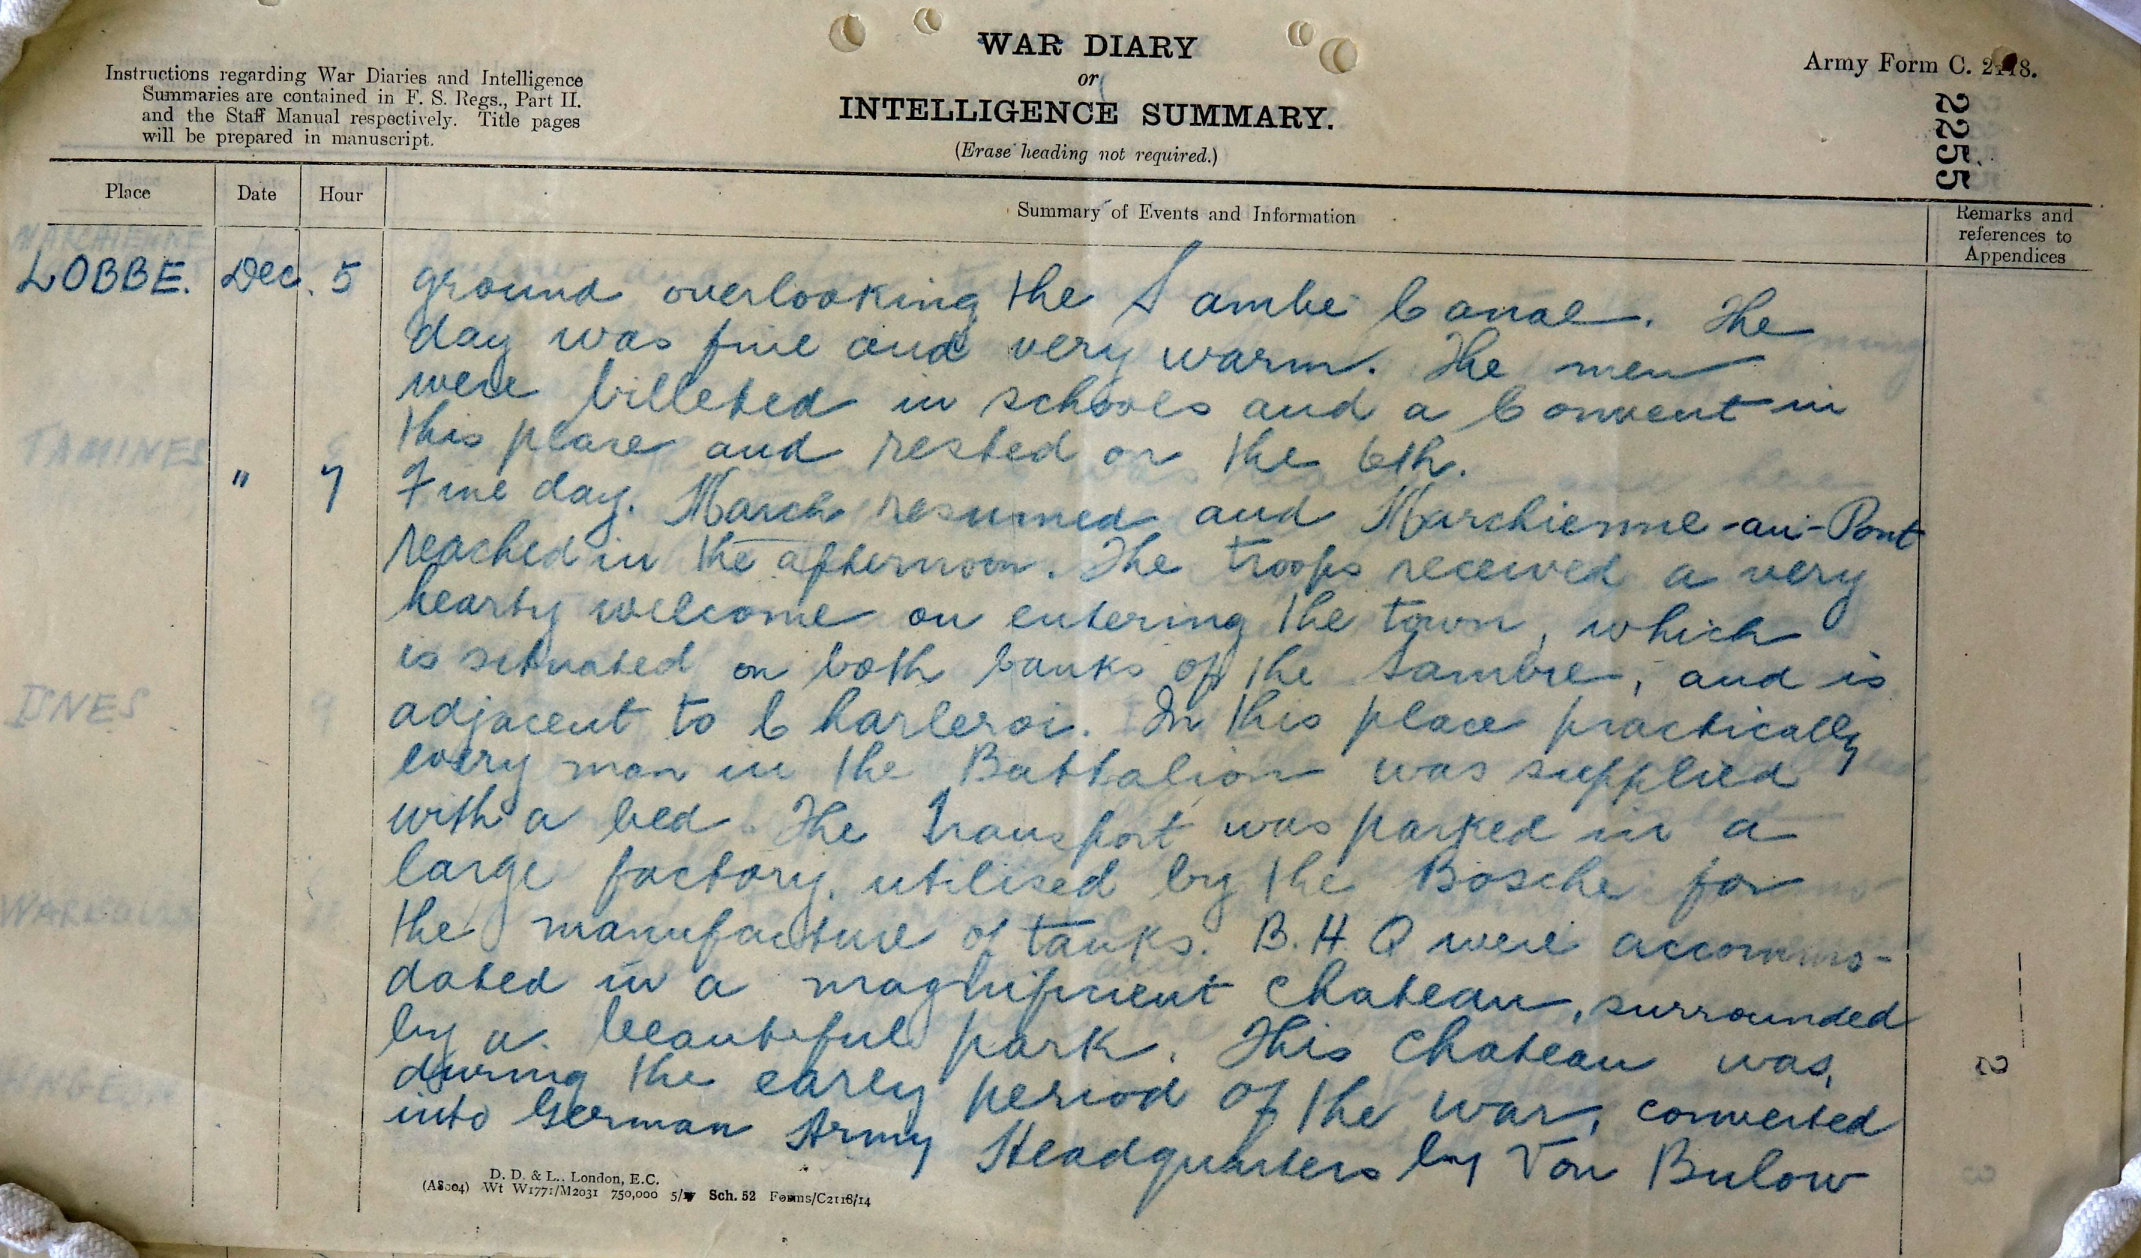 WAR DIARY
or
INTELLIGENCE SUMMARY.
(Erase heading not required.)
Instructions regarding War Diaries and Intelligence
Summaries are contained in F. S. Regs., Part II.
and the Staff Manual respectively. Title pages
will be prepared in manuscript.
Army Form C. 2118.
2255
Place Date Hour Summary of Events and Information Remarks and
references to
Appendices
LOBBE. Dec. 5 ground overlooking the Sambe Canal. The
day was fine and very warm. The men
were billeted in schools and a Convent in
this place and rested on the 6th.
" 7 Fine day. March resumed and Marchienne-au-Pont
reached in the afternoon. The troops received a very
hearty welcome on entering the town, which
is situated on both banks of the Sambre, and is
adjacent to Charleroi. In this place practically
every man in the Battalion was supplied
with a bed. The Transport was parked in a
large factory, utilised by the Bosche for
the manufacture of tanks. B.H.Q were accommo-
dated in a magnificent chateau, surrounded
by a beautiful park. This chateau was,
during the early period of the war, converted
into German Army Headquarters by Von Bulow
2
D. D. & L., London, E.C.
(A8004) Wt W1771/M2031 750,000 5/17 Sch. 52 Forms/C2118/14
MARCHIENNE
TAMINES
ISNES 9